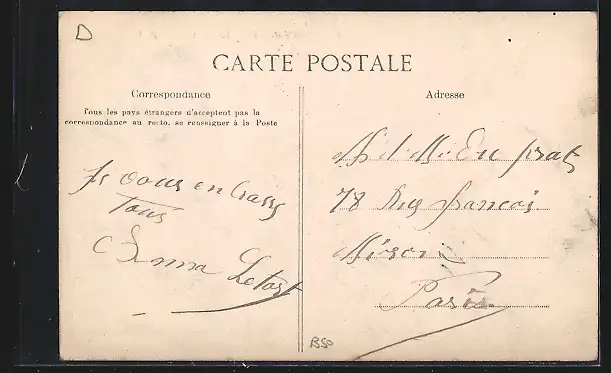 D
CARTE POSTALE
Correspondance
Tous les pays étrangers n'acceptent pas la
correspondance au recto, se renseigner à la Poste
Adresse
Je vous enbrass
Tous
Emma Letort
78 Rue francois
Miron
Paris
B50